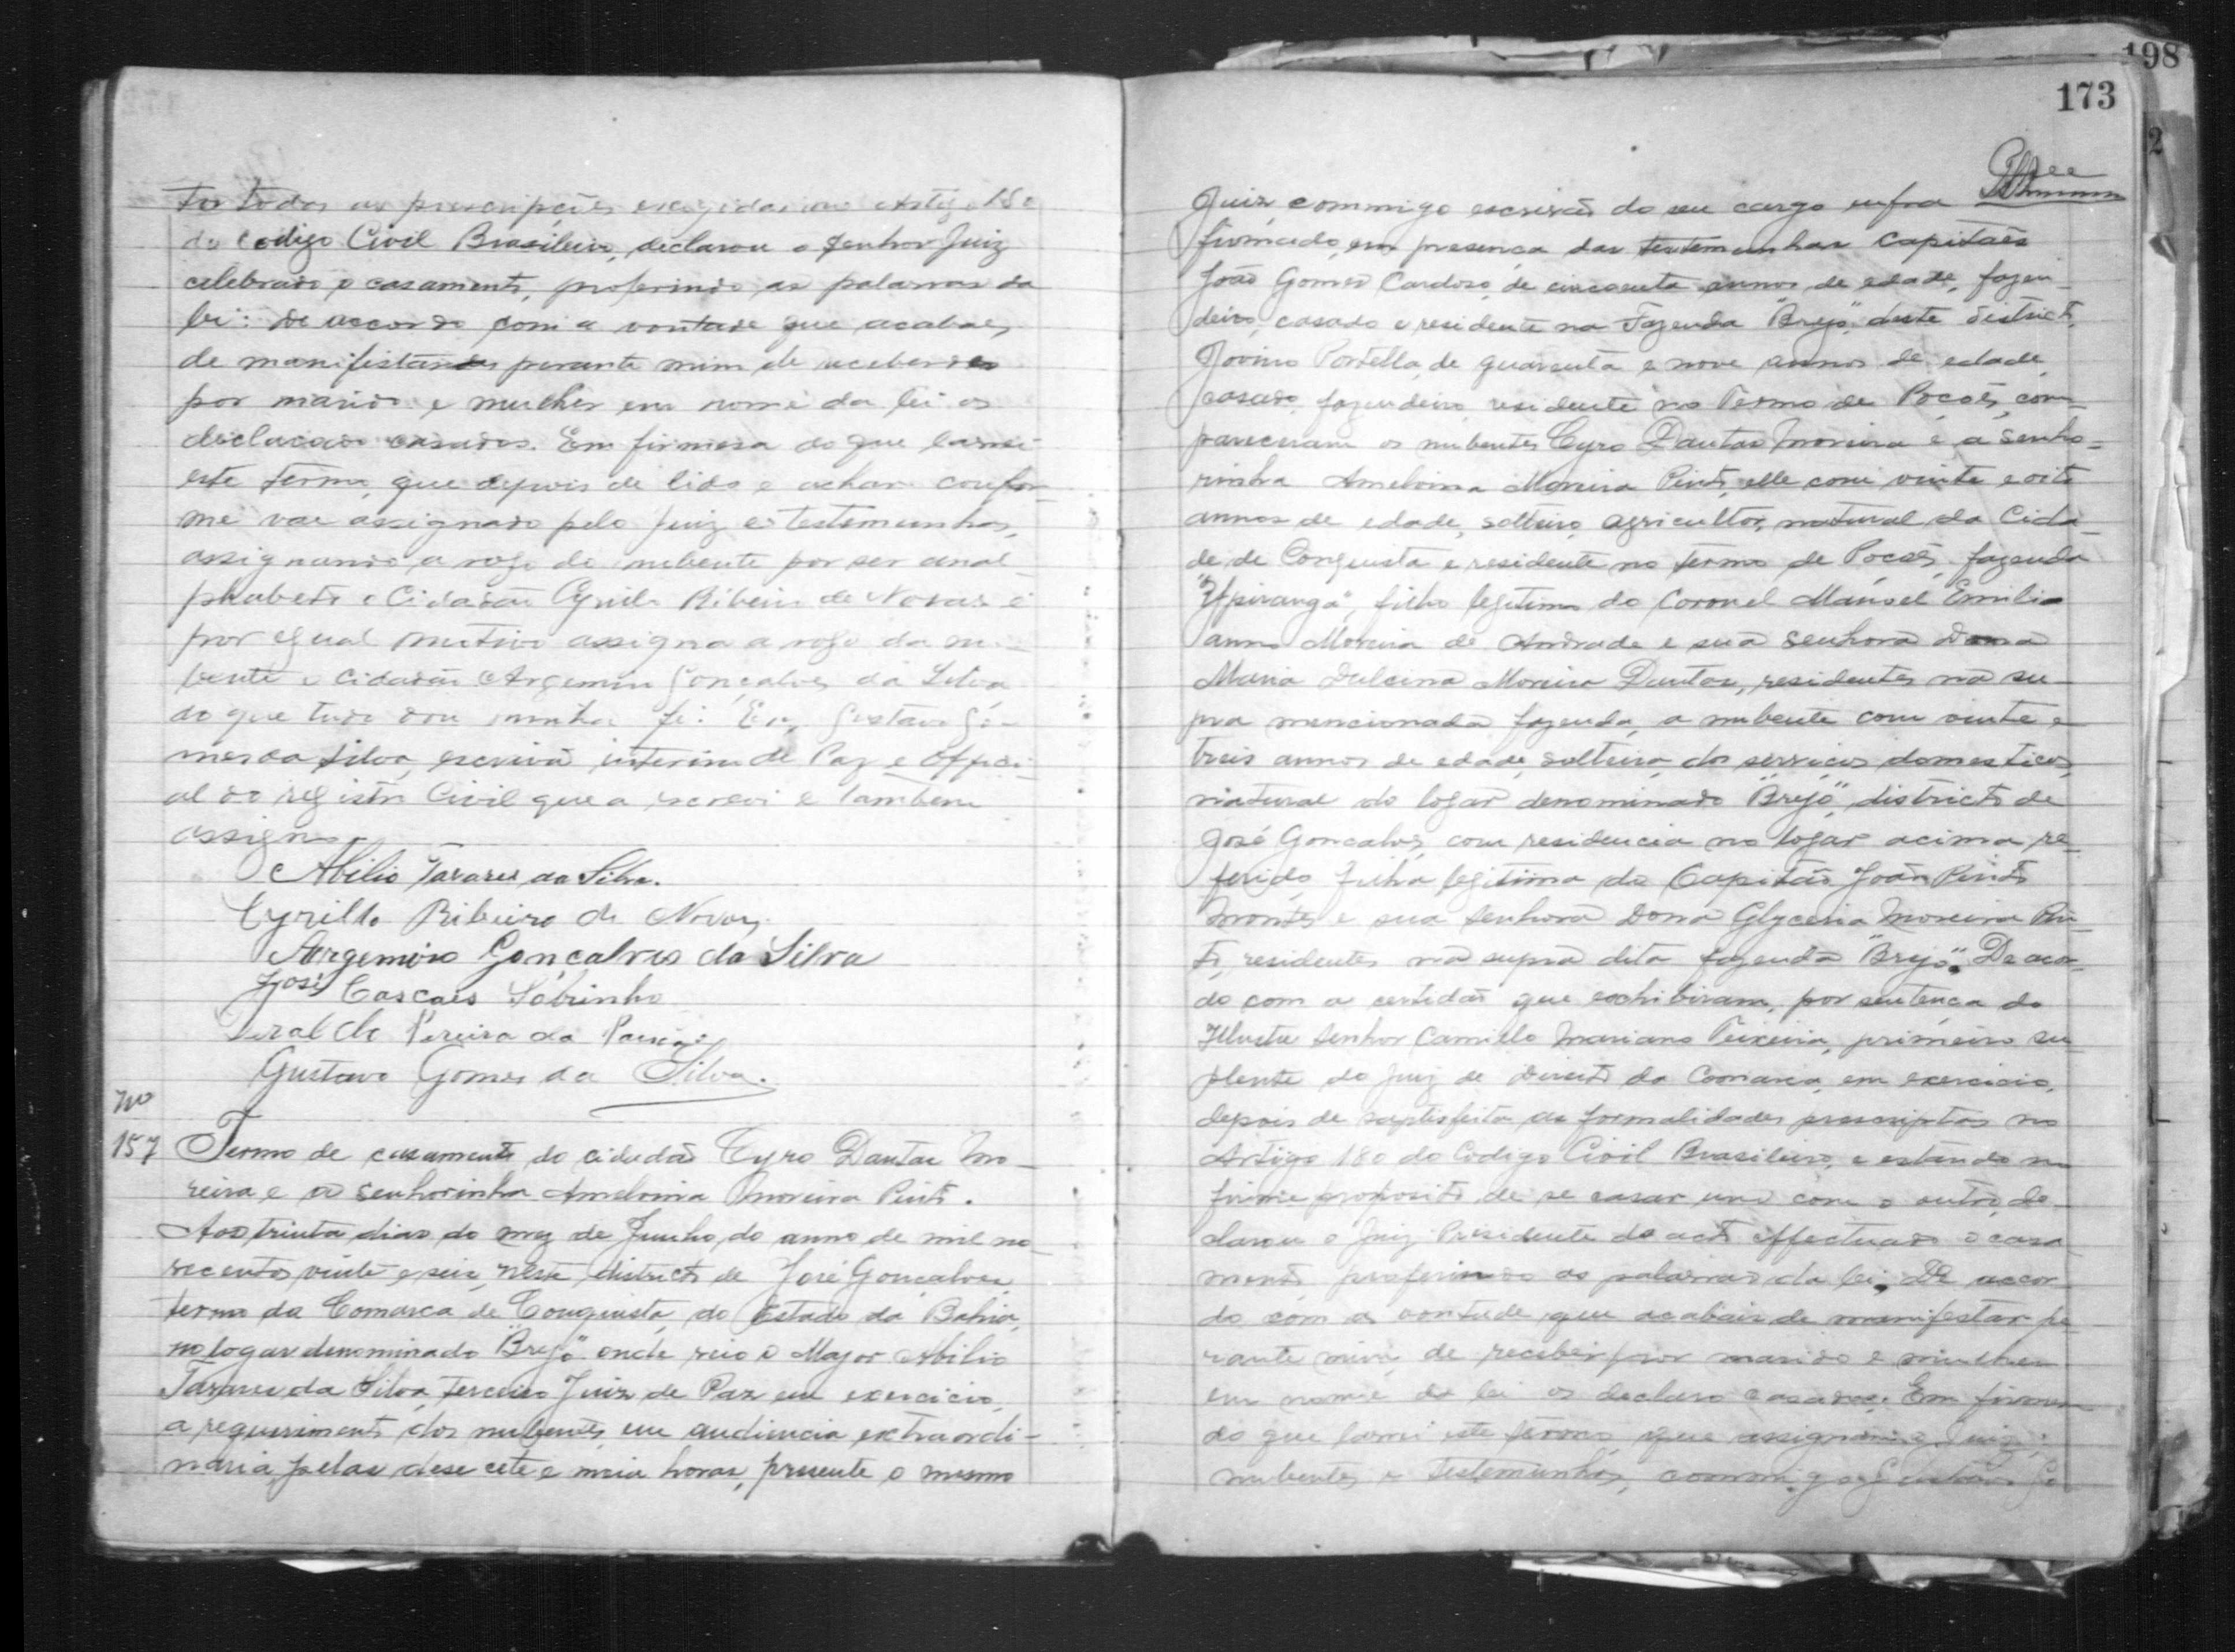 todas as prescripções exigidas no Artigo 180
do Codigo Civil Brasileiro, declarou o Senhor Juiz
celebrado o casamento, proferindo as palavras da
lei: De accordo com a vontade que acabaes,
de manifestar perante mim de receberdes
por marido e mulher em nome da lei os
declaro casados. Em firmesa do que lavrei
este termo, que depois de lido e achar confor-
me vae assignado pelo Juiz e testemunhas,
assignando a rogo do nubente por ser anal-
phabeto o Cidadão Cyrillo Ribeiro de Novaes e
por egual motivo assigna a rogo da nu-
bente o Cidadão Argemiro Gonçalves da Silva
do que tudo dou minha fé. Eu, Gustavo Go-
mes da Silva, escrivão interino de Paz e Offici-
al do registro Civil que a escrevi e tambem
assigno.
Abilio Tavares da Silva.
Cyrillo Ribeiro de Novaes.
Argemiro Gonçalves da Silva
José Cascaes Sobrinho
Pereira da
Gustavo Gomes da Silva.
No
157 Termo de casamento do cidadão Cyro Dantas Mo-
reira e a senhorinha Amelvina Moreira Pinto.
Aos trinta dias do mez de Junho, do anno de mil no-
vecentos vinte e seis, neste districto de José Gonçalves
termo da Comarca de Conquista, do Estado da Bahia,
no logar denominado "Brejo" onde veio o Major Abilio
Tavares da Silva, terceiro Juiz de Paz em exercicio,
a requerimento dos nubentes, em audiencia extraordi-
naria pelas desesete e meia horas, presente o mesmo
198
173
2
Juiz, commigo escrivão do seu cargo infra
firmado, em presença das testemunhas Capitães
João Gomes Cardoso, de cincoenta annos de edade, fazen-
deiro, casado e residente na Fazenda "Brejo", deste districto,
Jovino Portella, de quarenta e nove annos de edade,
casado, fazendeiro, residente no Termo de Poções, com-
pareceram os nubentes Cyro Dantas Moreira e a Senho-
rinha Amelvina Moreira Pinto, elle com vinte e oito
annos de edade, solteiro, agricultor, natural da Cida-
de de Conquista e residente no termo de Poções, fazenda
"Ypiranga", filho legitimo do Coronel Manoel Emilia
anno Moreira de Andrade e sua Senhora Dona
Maria Dulcina Moreira Dantas, residentes na su-
pra mencionada fazenda, a nubente com vinte e
treis annos de edade, solteira, dos serviços domesticos,
natural do logar denominado "Brejo", districto de
José Gonçalves, com residencia no logar acima re-
ferido, filha legitima do Capitão João Pinto
Montes e sua Senhora Dona Glyceria Moreira Pin-
to, residentes na supra dita fazenda "Brejo". De acor-
do com a certidão que exhibiram, por sentença do
Illustre Senhor Camillo Mariano Teixeira, primeiro su-
plente do Juiz de Direito da Comarca, em exercicio,
depois de saptisfeita as formalidades prescriptas no
Artigo 180 do Codigo Civil Brasileiro, e estando no
firme proposito de se casar um com o outro, de-
clarou o Juiz Presidente do acto effectuado o casa
mento, proferindo as palavras da lei. De accor-
do com a vontade que acabais de manifestar pe-
rante mim, de receber por marido e mulher
em nome da lei os declaro casados. Em firmesa
do que lavrei este termo, que assignam o Juiz,
nubentes e testemunhas, commigo Gustavo Go